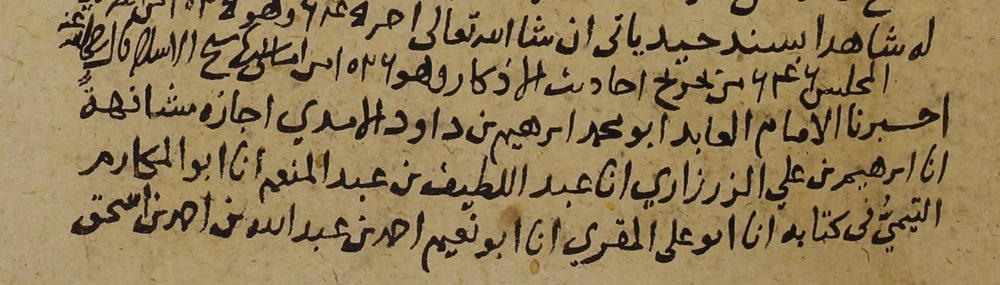 له شاهدا بسند جيد ياتى ان شا الله تعالى اخر
المجلس من تخريج احاديث الاذكار وهو
اخبرنا الامام العابد ابو محمد ابرهيم بن داود الامدي اجازه مشافهة
انا ابرهيم بن علي الزرزاري انا عبد اللطيف بن عبد المنعم انا ابو المكارم
التيمي فى كتابه انا ابو على المقري انا ابو نعيم احمد بن عبد الله بن احمد بن اسحق